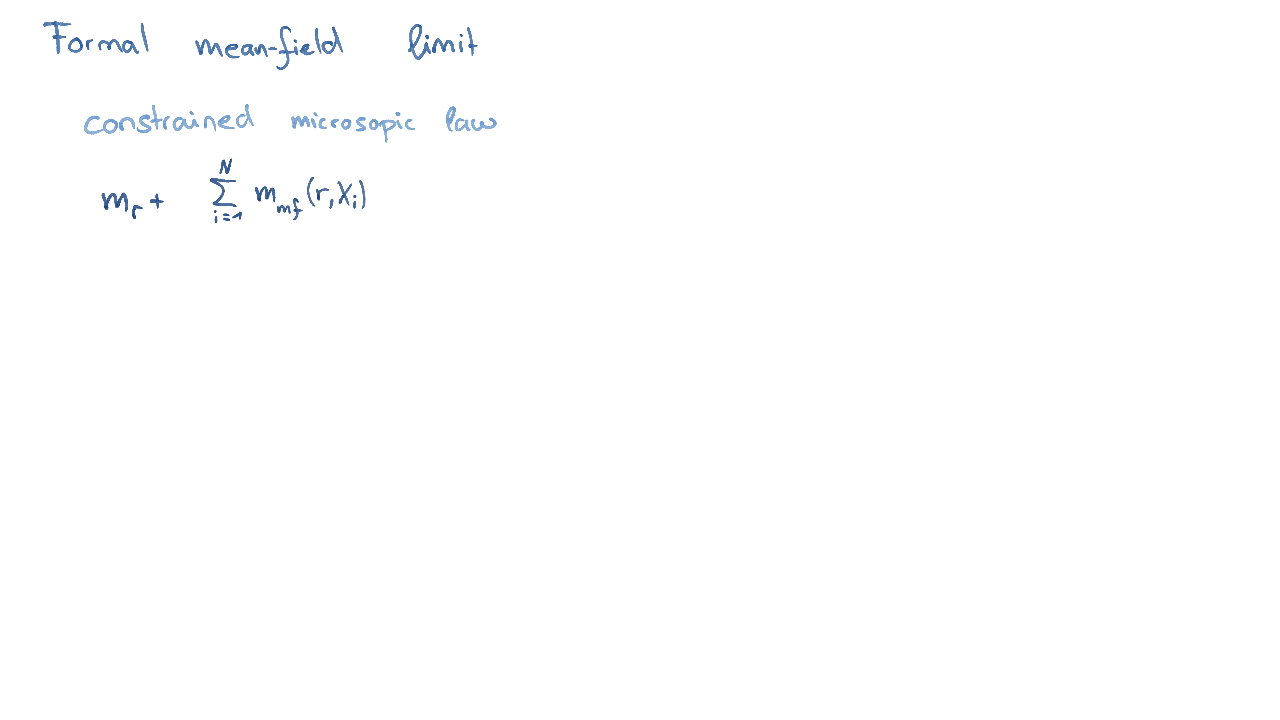 Formal mean-field limit
constrained microsopic law
m_r + \sum_{i=1}^{N} m_{mf}(r, X_i)